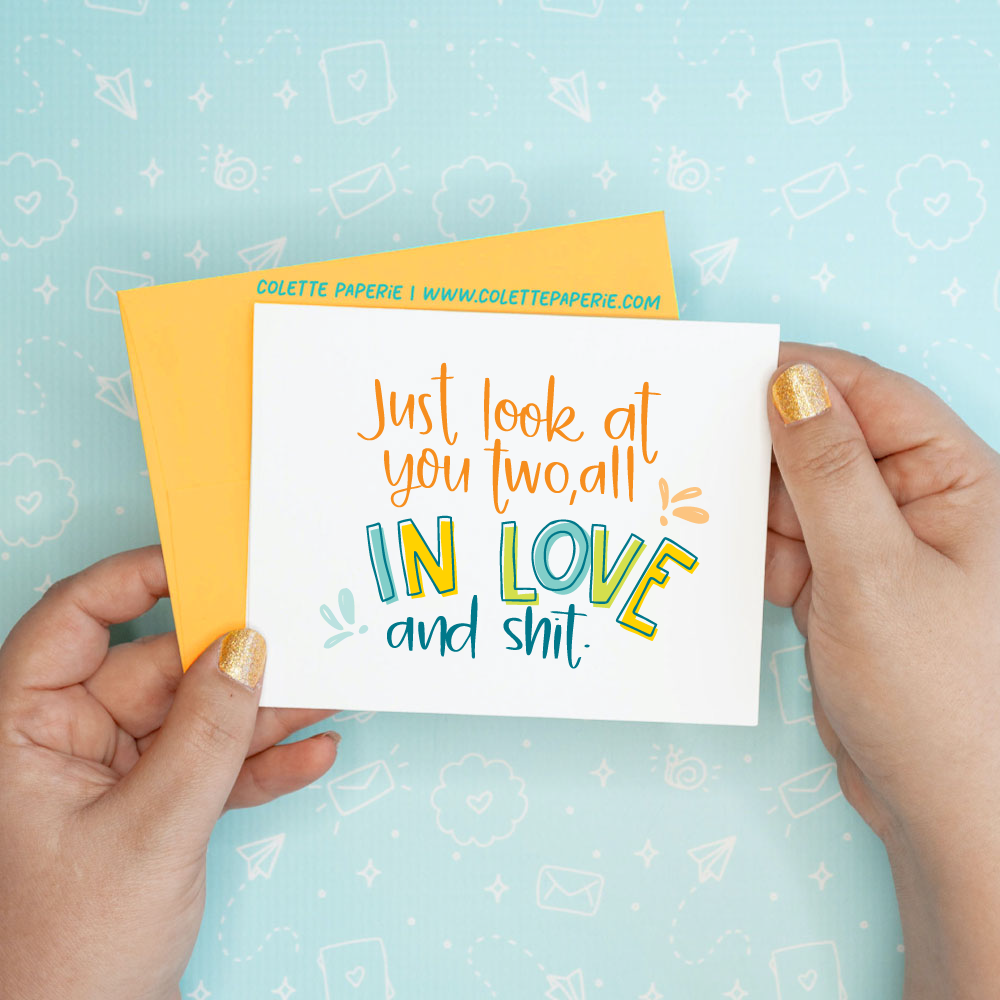 COLETTE PAPERiE | WWW.COLETTEPAPERIE.COM
Just look at
you two, all
IN LOVE
and shit.